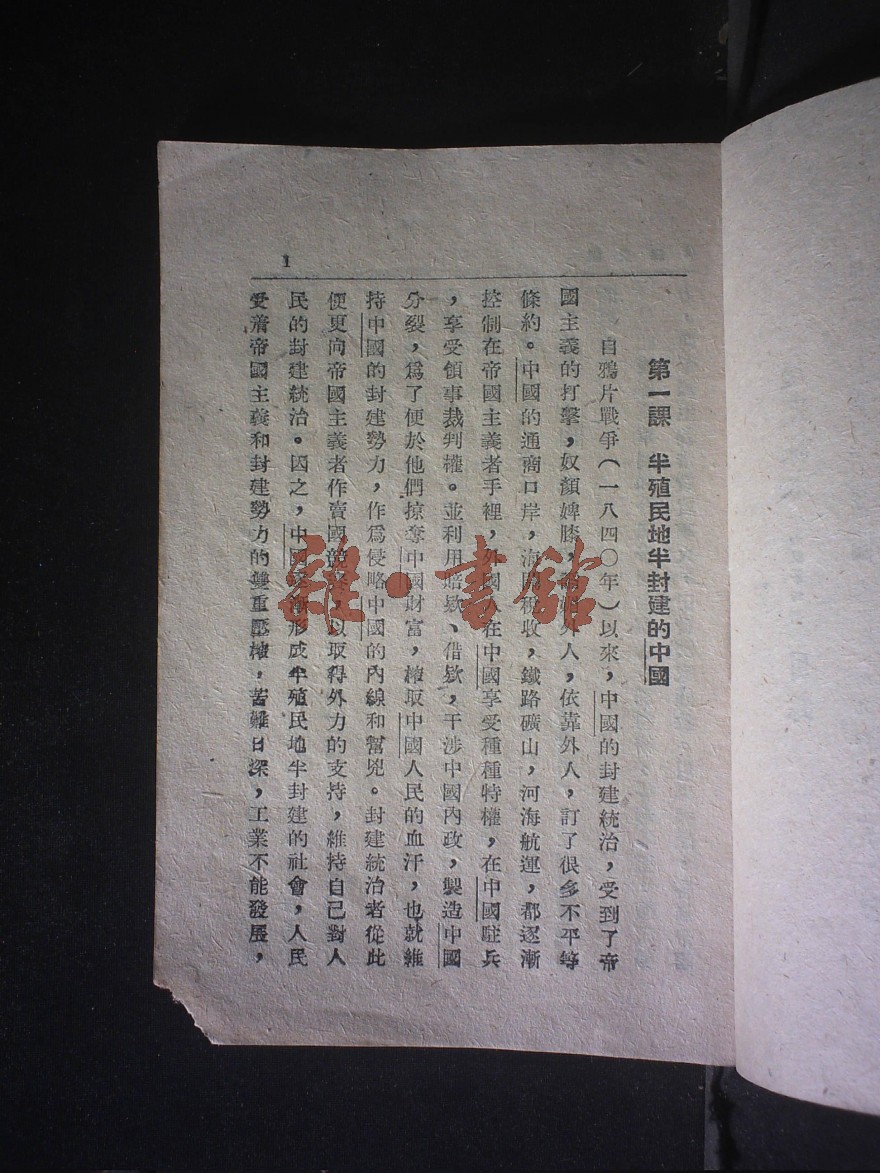 1
第一課　半殖民地半封建的中國
自鴉片戰爭（一八四〇年）以來，中國的封建統治，受到了帝
國主義的打擊，奴顏婢膝，外人，依靠外人，訂了很多不平等
條約。中國的通商口岸，海關稅收，鐵路礦山，河海航運，都逐漸
控制在帝國主義者手裡，外國人在中國享受種種特權，在中國駐兵
，享受領事裁判權。並利用賠欵、借欵，干涉中國內政，製造中國
分裂，爲了便於他們掠奪中國財富，榨取中國人民的血汗，也就維
持中國的封建勢力，作爲侵略中國的內線和幫兇。封建統治者從此
便更向帝國主義者作賣國競，以取得外力的支持，維持自己對人
民的封建統治。因之，中國逐漸形成半殖民地半封建的社會，人民
受着帝國主義和封建勢力的雙重壓榨，苦難日深，工業不能發展，
雜·書館